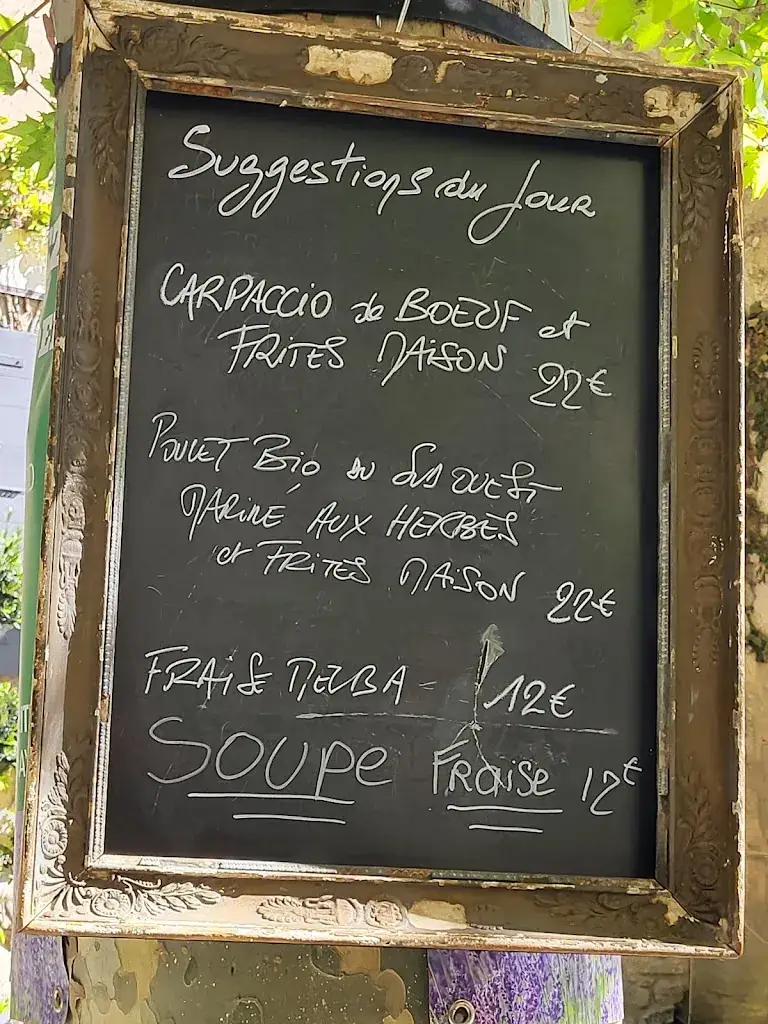 Suggestions du Jour
CARPACCIO de BOEUF et
FRITES MAISON 22€
POULET Bio du SUD OUEST
MARINÉ AUX HERBES
et FRITES MAISON 22€
FRAISE MELBA - 12€
SOUPE FRaise 12€